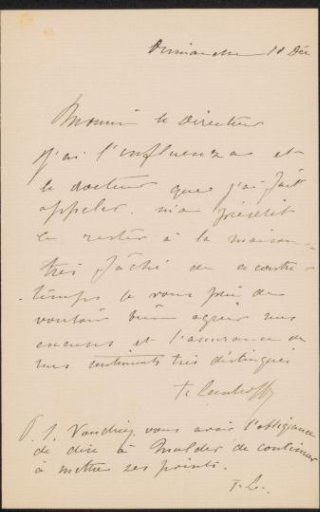 Dimanche 10 Déc
Monsieur le Directeur
J'ai l'influenza et
le docteur que j'ai fait
appeler m'a prescrit
de rester à la maison
très fâché de ce contre-
temps je vous prie de
vouloir bien agréer mes
excuses et l'assurance de
mes sentiments très distingués
P.S. vous avoir l'obligeance
de dire à Mulder de continuer
à mettre ses points.